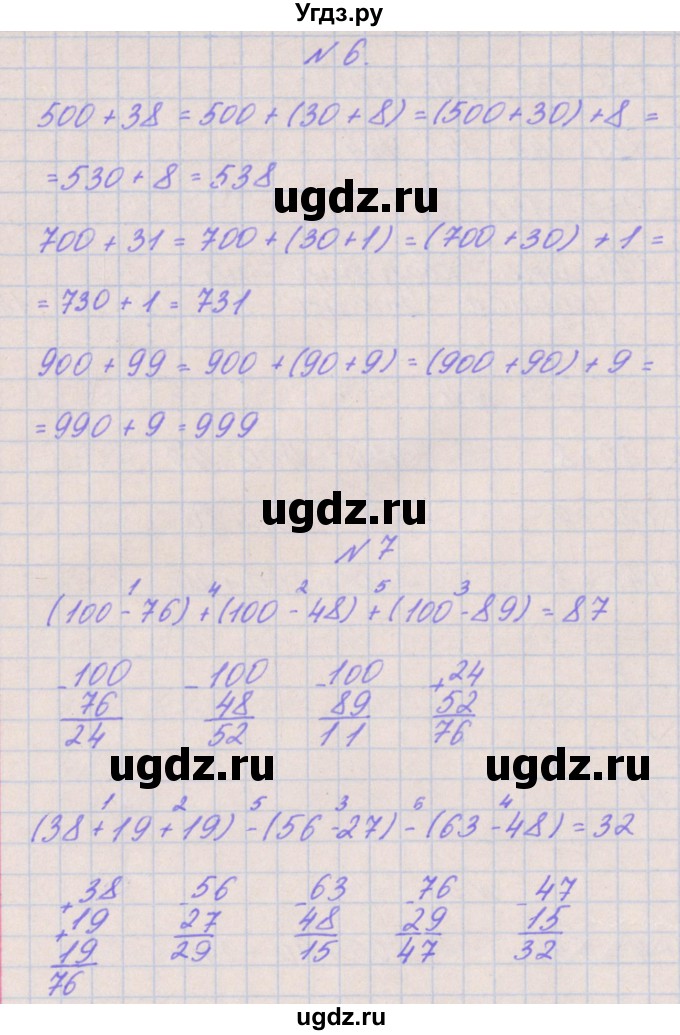 Угдз.ру
N 6.
500 + 38 = 500 + (30 + 8) = (500 + 30) + 8 =
= 530 + 8 = 538
ugdz.ru
700 + 31 = 700 + (30 + 1) = (700 + 30) + 1 =
= 730 + 1 = 731
900 + 99 = 900 + (90 + 9) = (900 + 90) + 9 =
= 990 + 9 = 999
ugdz.ru ugdz.ru
N 7
1 4 2 5 3
(100 - 76) + (100 - 48) + (100 - 89) = 87
- 100 - 100 - 100 + 24
76 48 89 52
24 52 11 76
ugdz.ru ugdz.ru
1 2 5 3 6 4
(38 + 19 + 19) - (56 - 27) - (63 - 48) = 32
+ 38 - 56 - 63 - 76 - 47
+ 19 27 48 29 15
19 29 15 47 32
76
ugdz.ru